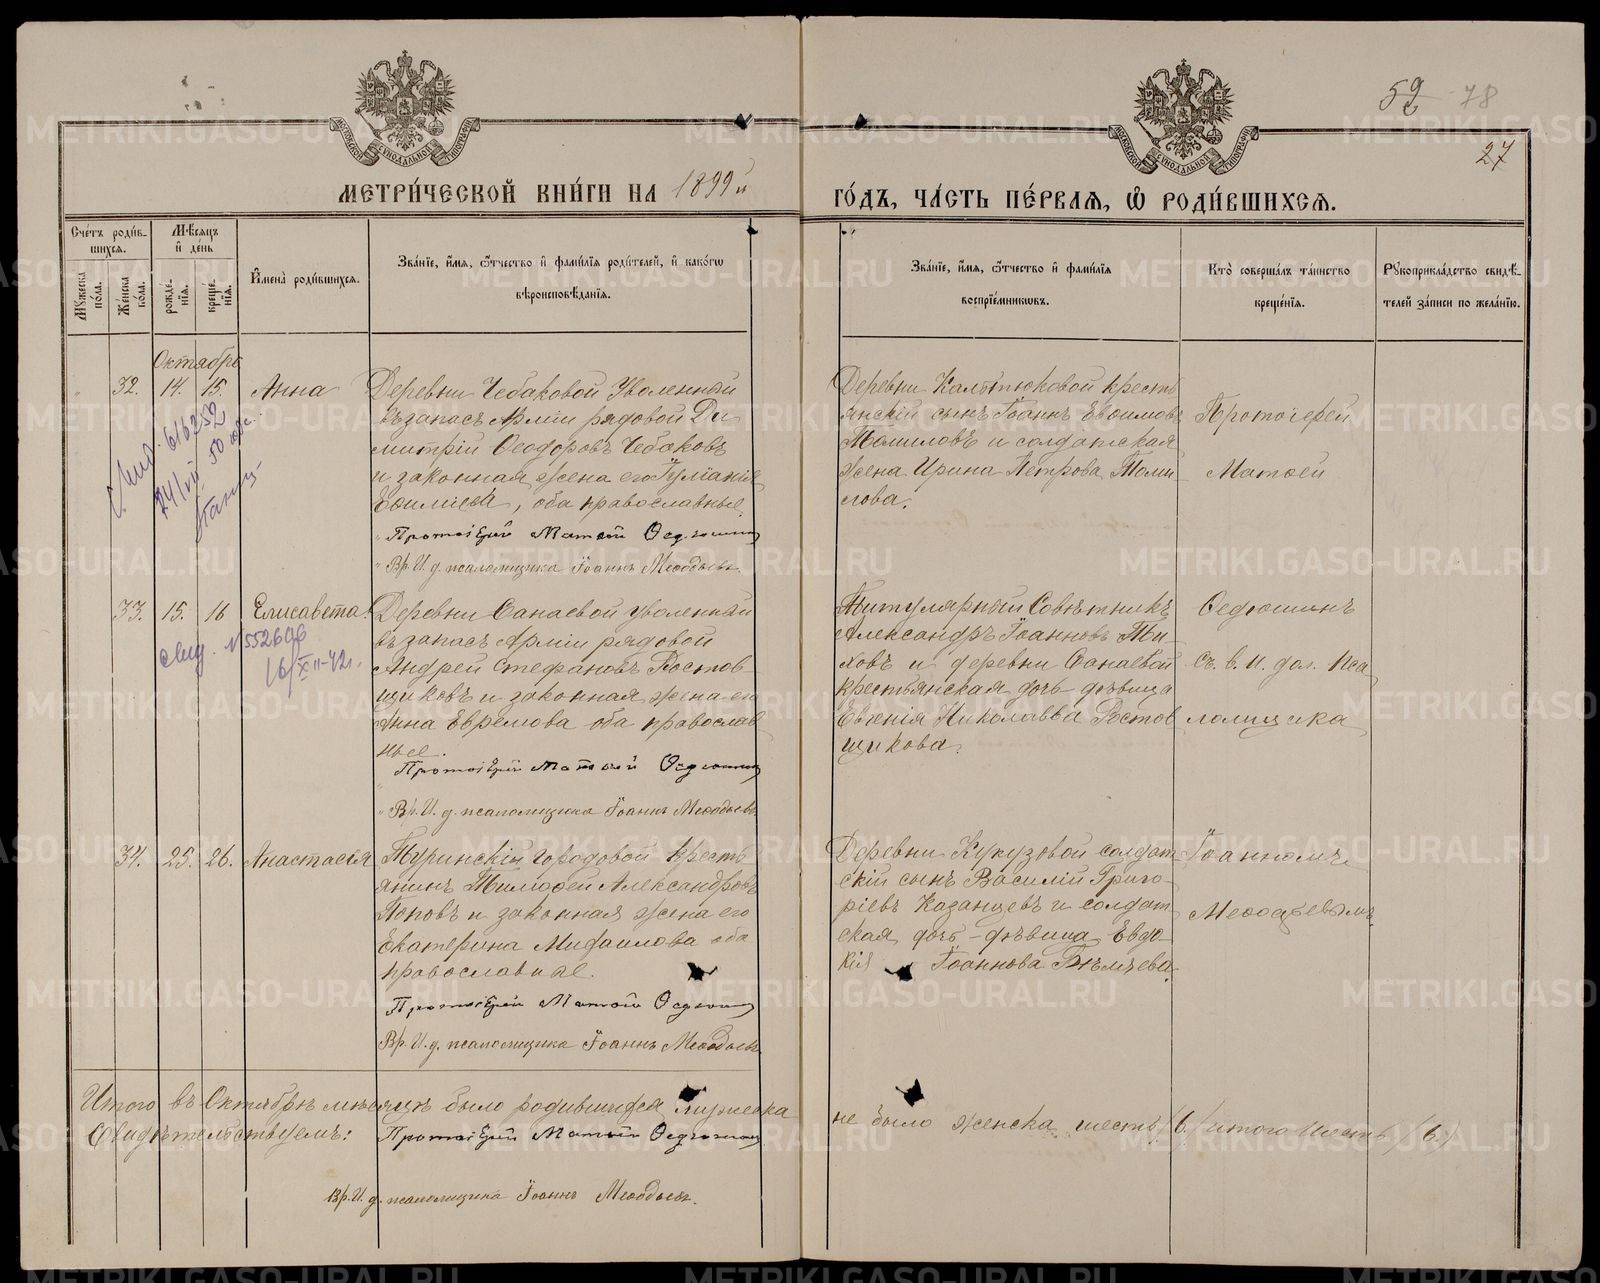 59 78
27
МОСКОВСКОЙ СѴНОДАЛЬНОЙ ТИПОГРАФІИ
МОСКОВСКОЙ СѴНОДАЛЬНОЙ ТИПОГРАФІИ
МЕТРИ́ЧЕСКОЙ КНИ́ГИ НА 1899 й ГО́ДЪ, ЧА́СТЬ ПЕ́РВАѦ, Ѡ РОДИ́ВШИХСѦ.
Сче́тъ роди́вшихсѧ.
Мꙋ́жеска по́ла.
Же́нска по́ла.
Мѣ́сѧцъ и҆ де́нь
рожде́нїѧ.
креще́нїѧ.
И҆мена̀ роди́вшихсѧ.
Зва́нїе, и҆́мѧ, ѻ҆́тчество и҆ фами́лїѧ роди́телей, и҆ како́гѡ
вѣроисповѣ́данїѧ.
Зва́нїе, и҆́мѧ, ѻ҆́тчество и҆ фами́лїѧ
воспрїе́мникѡвъ.
Кто̀ соверша́лъ та́инство
креще́нїѧ.
Рꙋкоприкла́дство свидѣ́-
телей за́писи по жела́нїю.
Октябрь
32. 14. 15. Анна
Деревни Чебаковой Уволенный
въ запасъ Арміи рядовой Ди
митрій Ѳеодоровъ Чебаковъ
и законная жена его Іуліанія
Евѳиміева, оба православные.
Протоіерей Матѳей Ѳедюшин
Вр. И. д. псаломщика Іоаннъ Меѳодьевъ
Деревни Калтюковой кресть
янскій сынъ Іоаннъ Евѳимовъ
Томиловъ и солдатская
жена Ирина Петрова Томи
лова.
Протоіерей
Матѳей
616252
33. 15. 16 Елисавета.
Деревни Санаевой уволенный
въ запасъ Арміи рядовой
Андрей Стефановъ Ростов
щиковъ и законная жена его
Анна Ефремова оба православ
ные.
Протоіерей Матѳей Ѳедюшин
Вр. И. д. псаломщика Іоаннъ Меѳодьевъ
Титулярный Совѣтникъ
Александръ Іоанновъ Ти
ховъ и деревни Санаевой
крестьянская дочь дѣвица
Евгенія Николаевва Ростов
щикова.
Ѳедюшинъ
съ в. И. дол. Пса
ломщика
свид. № 552606
16/XII-42г.
34. 25. 26. Анастасія
Туринскій городовой кресть
янинъ Тимоѳей Александровъ
Поповъ и законная жена его
Екатерина Михаилова оба
православные.
Протоіерей Матѳей Ѳедюшин
Вр. И. д. псаломщика Іоаннъ Меѳодьевъ
Деревни Кукузовой солдат
скій сынъ Василій Григо-
ріевъ Казанцевъ и солдат
ская дочь - дѣвица Евдо-
кія Іоаннова
Іоанномъ
Меѳодьевымъ
Итого въ Октябрѣ мѣсяцѣ было родившихся мужеска не было женска шесть /6./ итого шесть /6./
Свидѣтельствуемъ: Протоіерей Матѳей Ѳедюшин
Вр. И. д. псаломщика Іоаннъ Меѳодьевъ.
METRIKI.GASO-URAL.RU